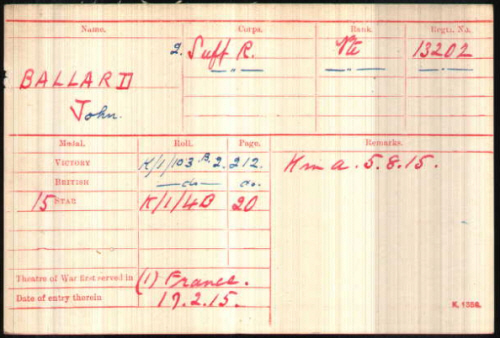 Name. Corps. Rank. Regtl. No.
2. Suff R. Pte 13202
BALLARD " " "
John.
Medal. Roll. Page. Remarks.
VICTORY K/1/103 B.2. 212. K in a. 5.8.15.
BRITISH do do.
15 STAR K/1/4B 20
Theatre of War first served in (1) France.
Date of entry therein 19.2.15.
K. 1380.